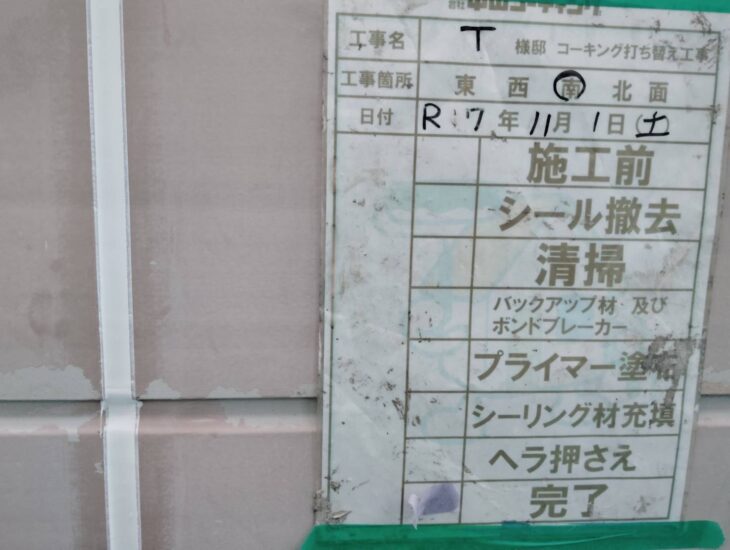 工事名 T 様邸 コーキング打ち替え工事
工事箇所 東 西 南 北 面
日付 R 7 年 11月 1日 (土)
施工前
シール撤去
清掃
バックアップ材 及び
ボンドブレーカー
プライマー塗布
シーリング材充填
ヘラ押さえ
完了